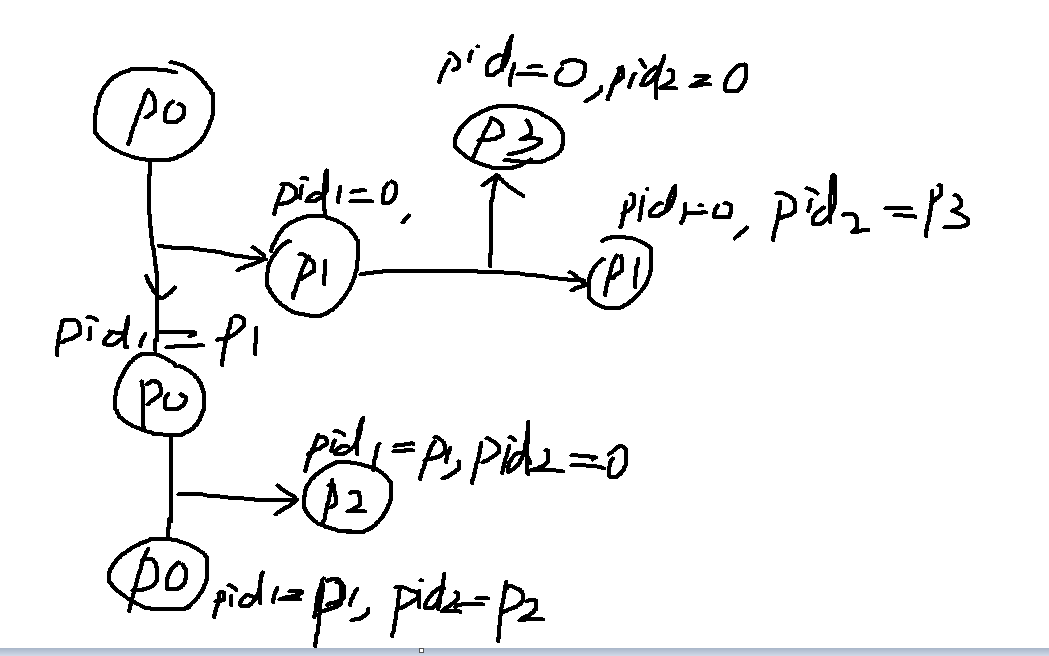 pid1=0,pid2=0
p0
p3
pid1=0,
pid1=0, pid2=p3
p1
p1
pid1=p1
p0
pid1=p1,pid2=0
p2
p0
pid1=p1, pid2=p2